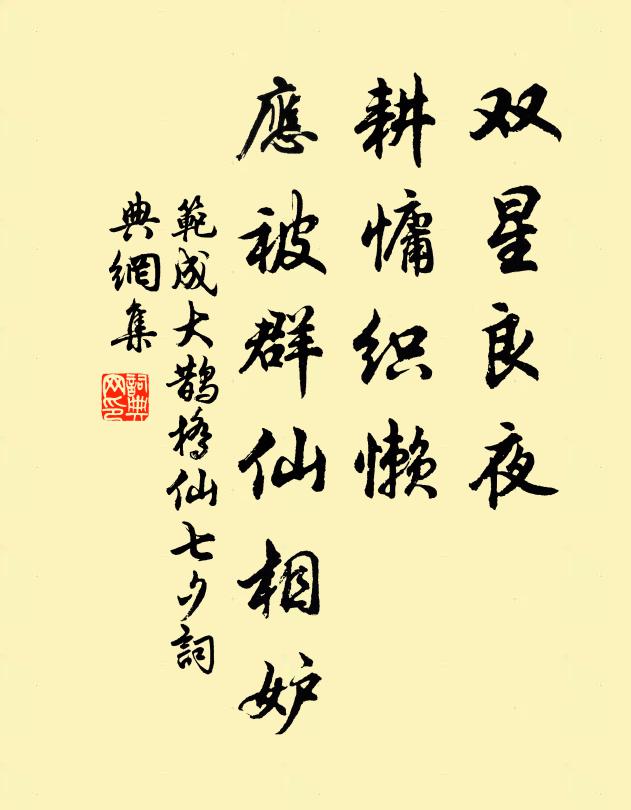 双星良夜
耕慵织懒
應被群仙相妒
範成大鵲橋仙七夕詞
典網集
詞典网印